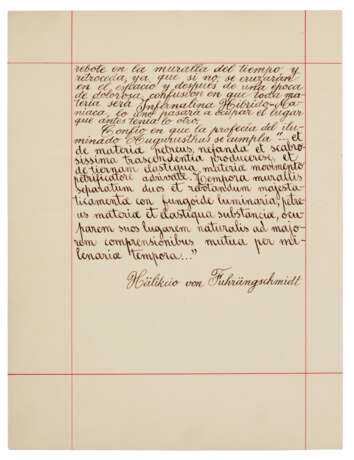 rebote en la muralla del tiempo y
retroceda, ya que si no, se cruzarán
en el espacio y después de una época
de dolorosa confusión en que toda ma-
teria será Infernalina Híbrido-Ma-
niaca, lo uno pasará a ocupar el lugar
que antes tenía lo otro.
Confío en que la profecía del ilu-
minado Augurusthus se cumpla "... et
de materia petreus, nefanda et scabro-
sissima trascendentia producerse, et
de tiernam elastiqua, materia movimento
petrificatore advinotte. Tempora murallis
separatum duos et rabotandum majesta-
ticamenta con fungoide luminaria, petre-
us materia et elastiqua substancia, ocu-
parem suos lugarem naturalis ad majo-
rem comprensionibus mutua per mi-
lenaria tempora..."
Hälikcio von Fuhrängschmidt